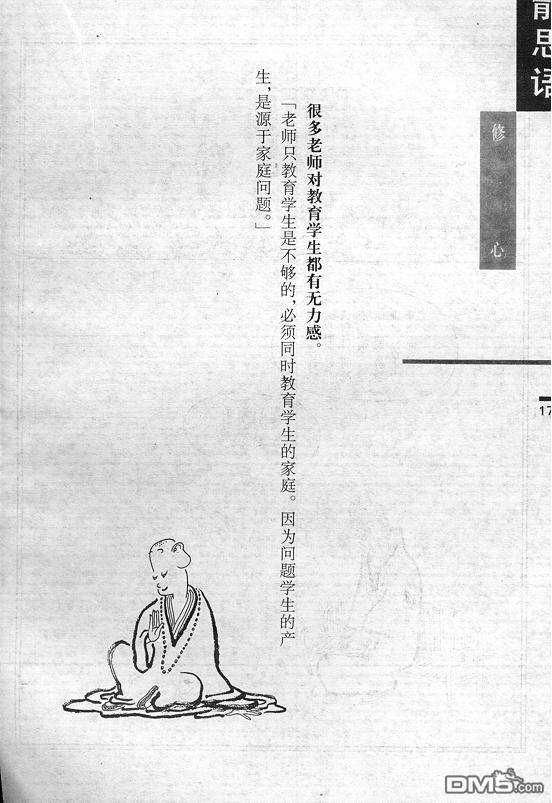 前思语
修心
17
很多老师对教育学生都有无力感。
「老师只教育学生是不够的，必须同时教育学生的家庭。因为问题学生的产
生，是源于家庭问题。」
DM5.com